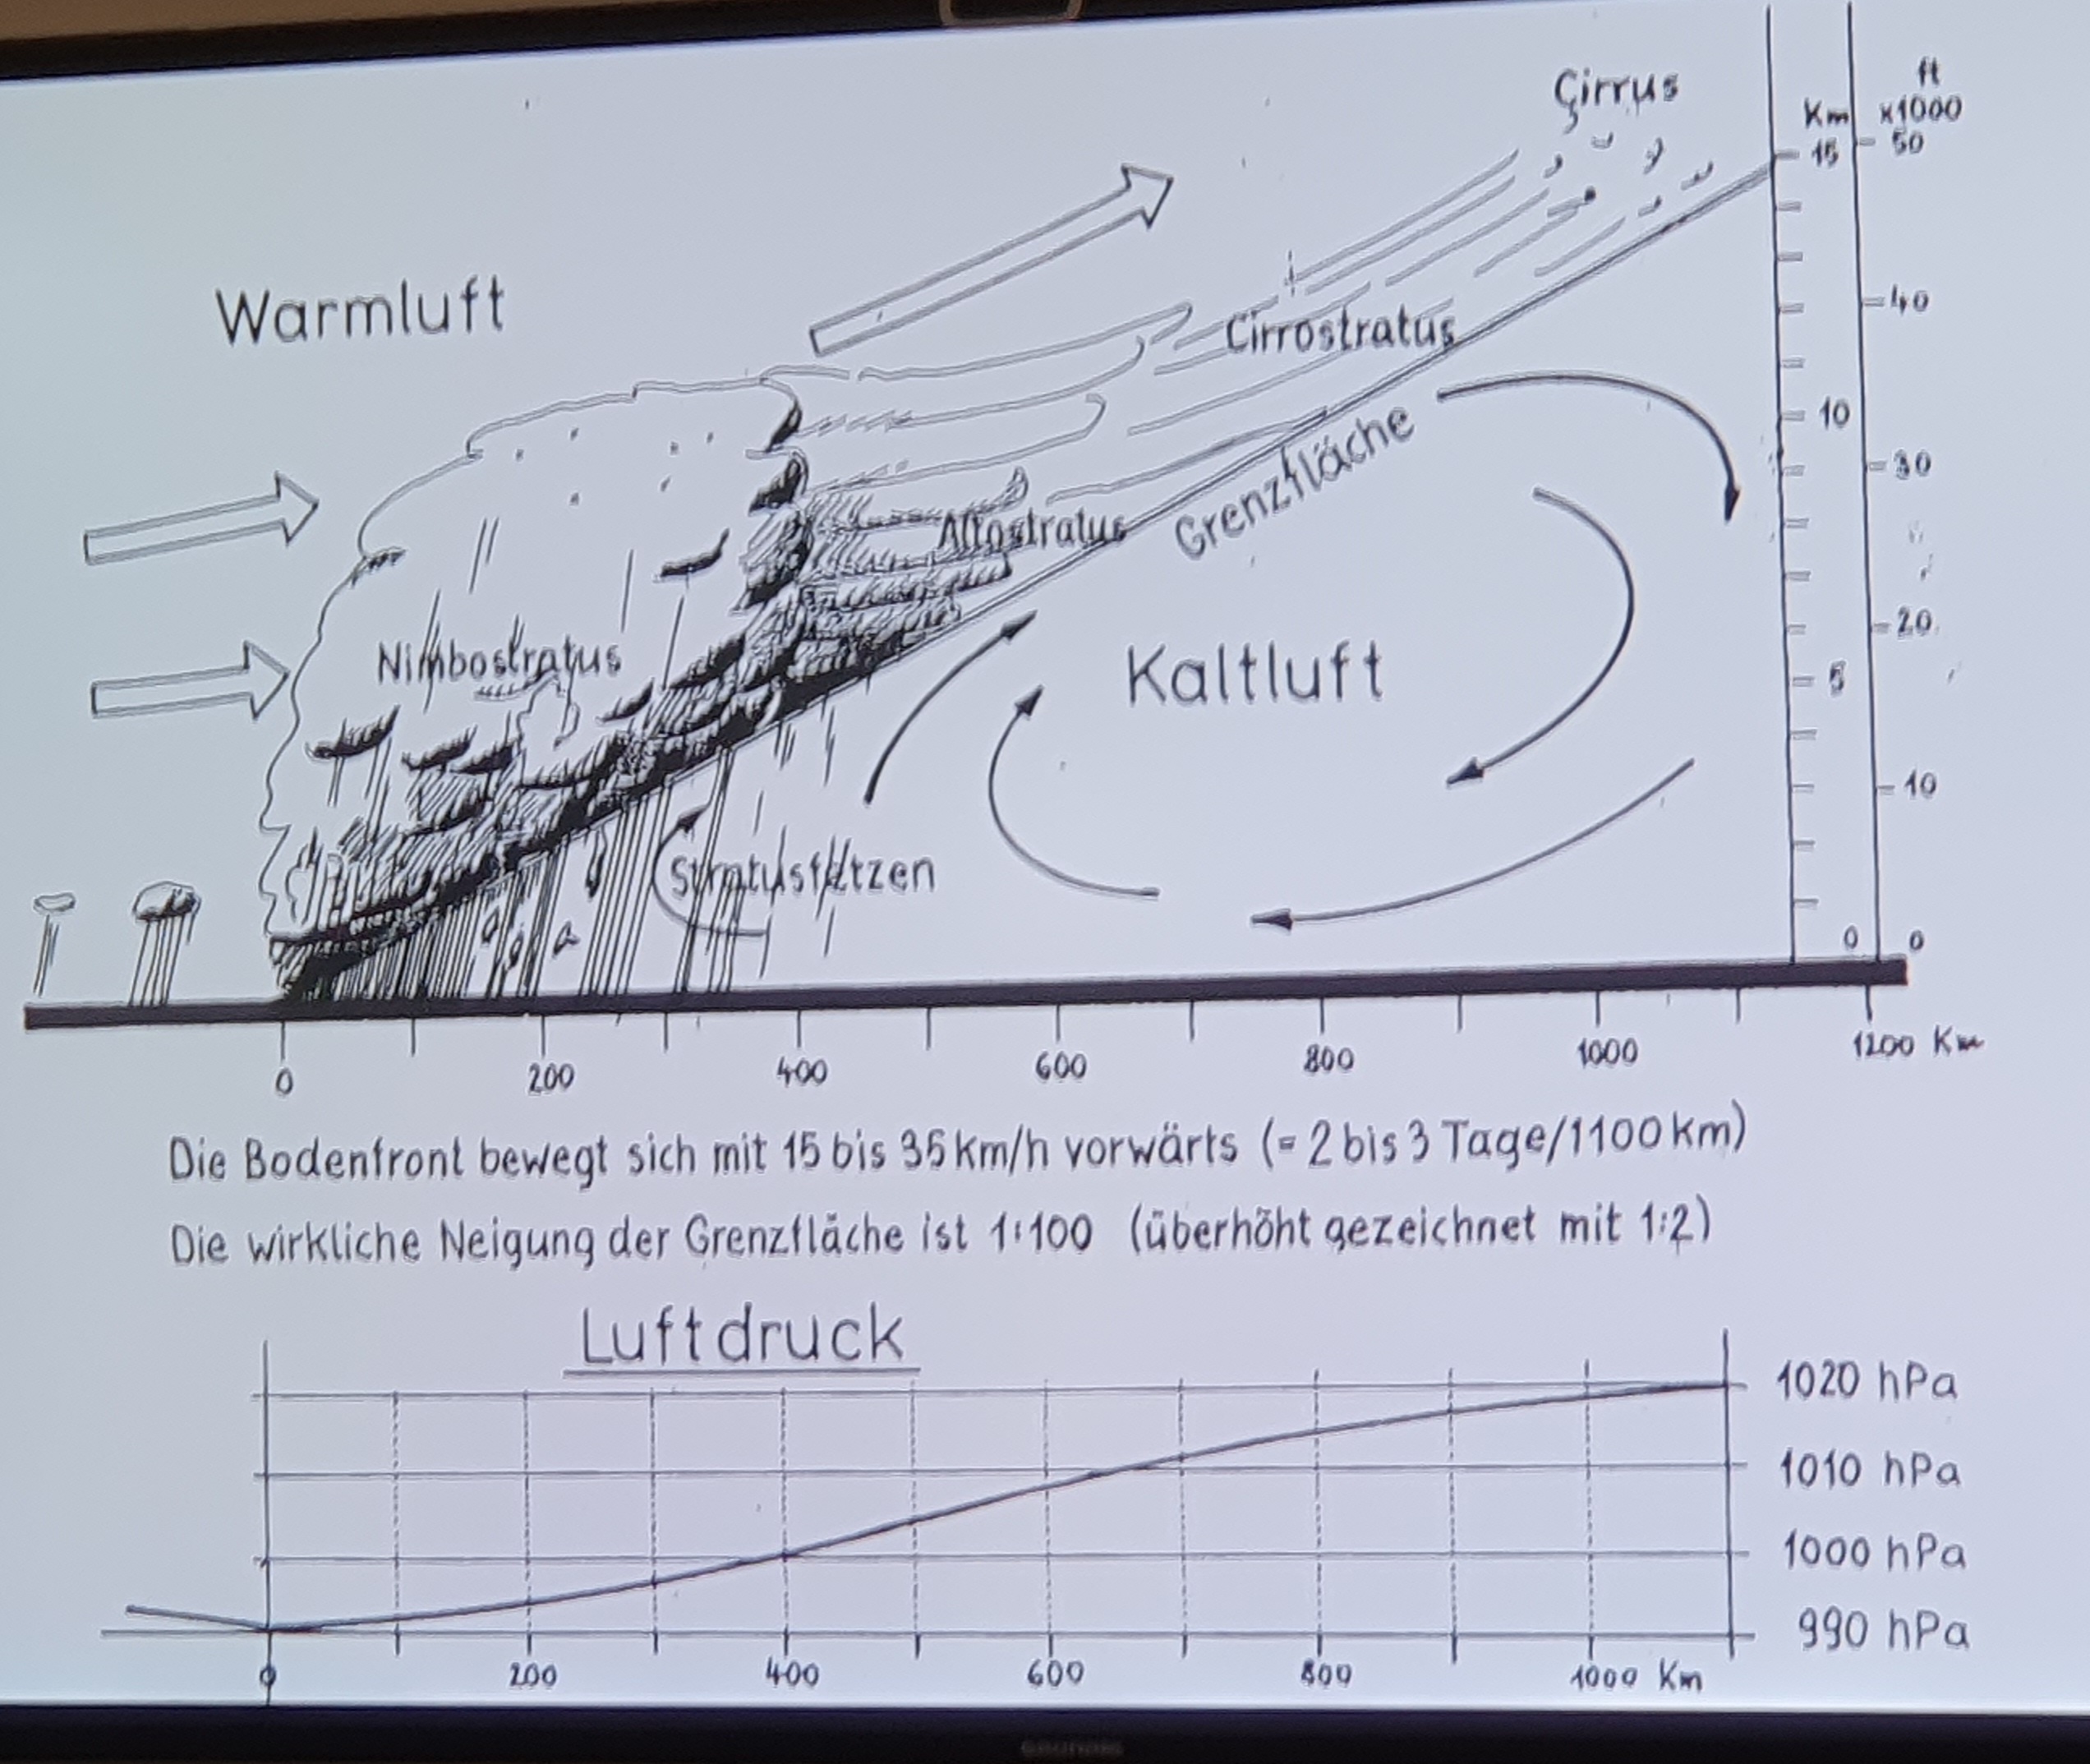 Cirrus
Km
ft
x1000
15
50
Warmluft
40
Cirrostratus
10
Grenzfläche
30
Altostratus
20
Nimbostratus
Kaltluft
5
10
Stratusfetzen
0
0
0
200
400
600
800
1000
1200 Km
Die Bodenfront bewegt sich mit 15 bis 35 km/h vorwärts (= 2 bis 3 Tage/1100 km)
Die wirkliche Neigung der Grenzfläche ist 1:100 (überhöht gezeichnet mit 1:2)
Luftdruck
1020 hPa
1010 hPa
1000 hPa
990 hPa
0
200
400
600
800
1000 Km
GRUNDIG